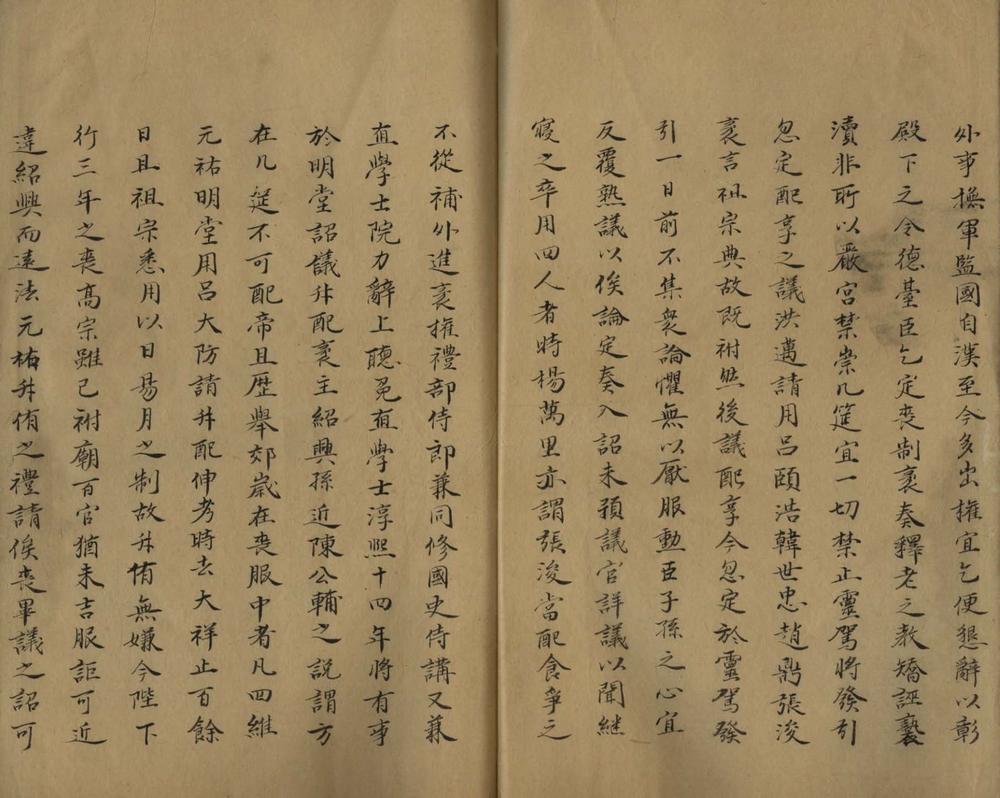 外事撫軍監國自漢至今多出權宜乞便懇辭以彰
殿下之令德臺臣乞定喪制袤奏釋老之教矯誣褻
瀆非所以嚴宮禁崇几筵宜一切禁止靈駕將發引
忽定配享之議洪邁請用呂頤浩韓世忠趙鼎張浚
袤言祖宗典故既祔然後議配享今忽定於靈駕發
引一日前不集衆論懼無以厭服勳臣子孫之心宜
反覆熟議以俟論定奏入詔未預議官詳議以聞継
寢之卒用四人者時楊萬里亦謂張浚當配食爭之
不從補外進袤權禮部侍郎兼同修國史侍講又兼
直學士院力辭上聽免直學士淳熙十四年將有事
於明堂詔議升配袤主紹興孫近陳公輔之説謂方
在几筵不可配帝且歷舉郊歲在喪服中者凡四維
元祐明堂用呂大防請升配伸考時去大祥止百餘
日且祖宗悉用以日易月之制故升侑無嫌今陛下
行三年之喪高宗雖已祔廟百官猶未吉服詎可近
違紹興而遠法元祐升侑之禮請俟喪畢議之詔可